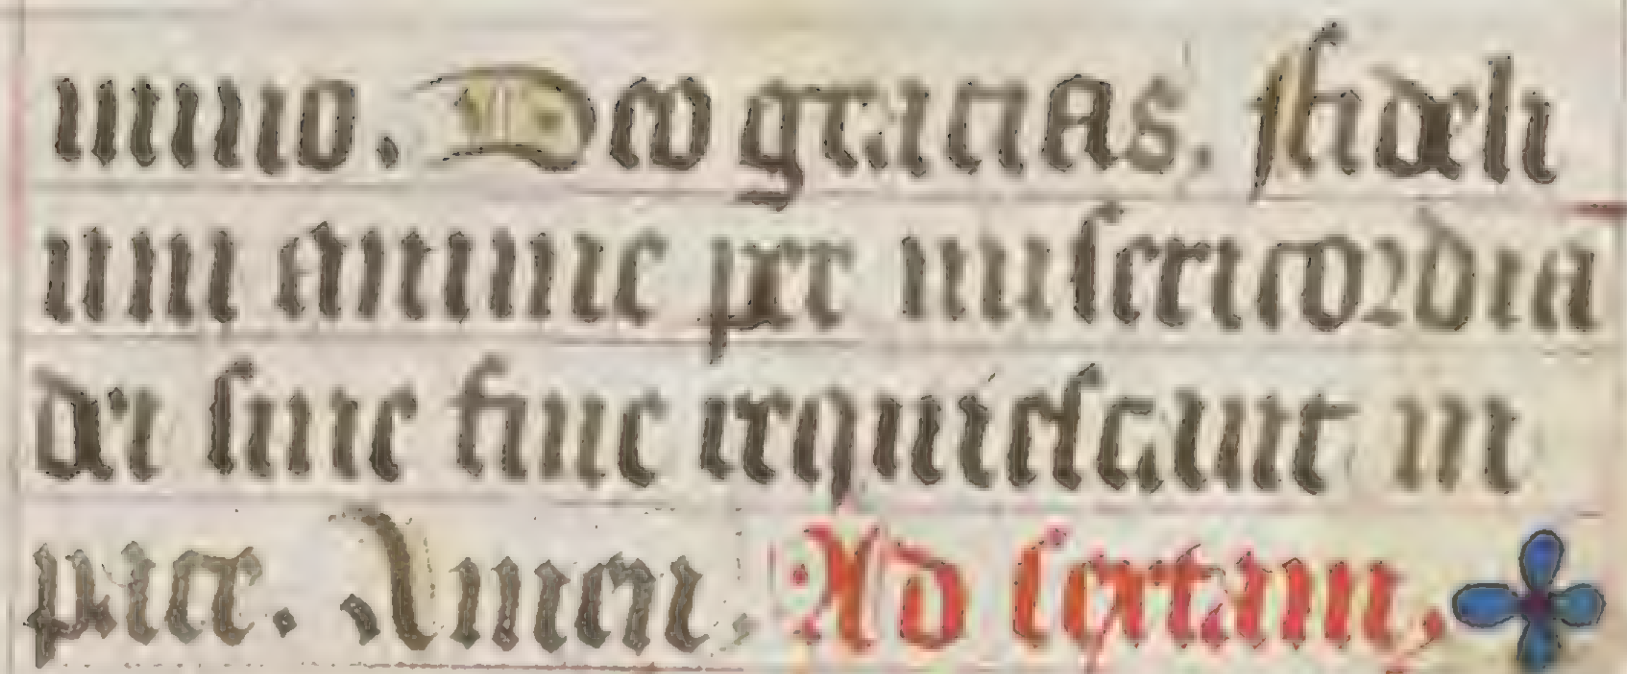 mino. Deo gracias. fideli
um anime per misericordia
dei sine fine requiescant in
pace. Amen. Ad sextam.